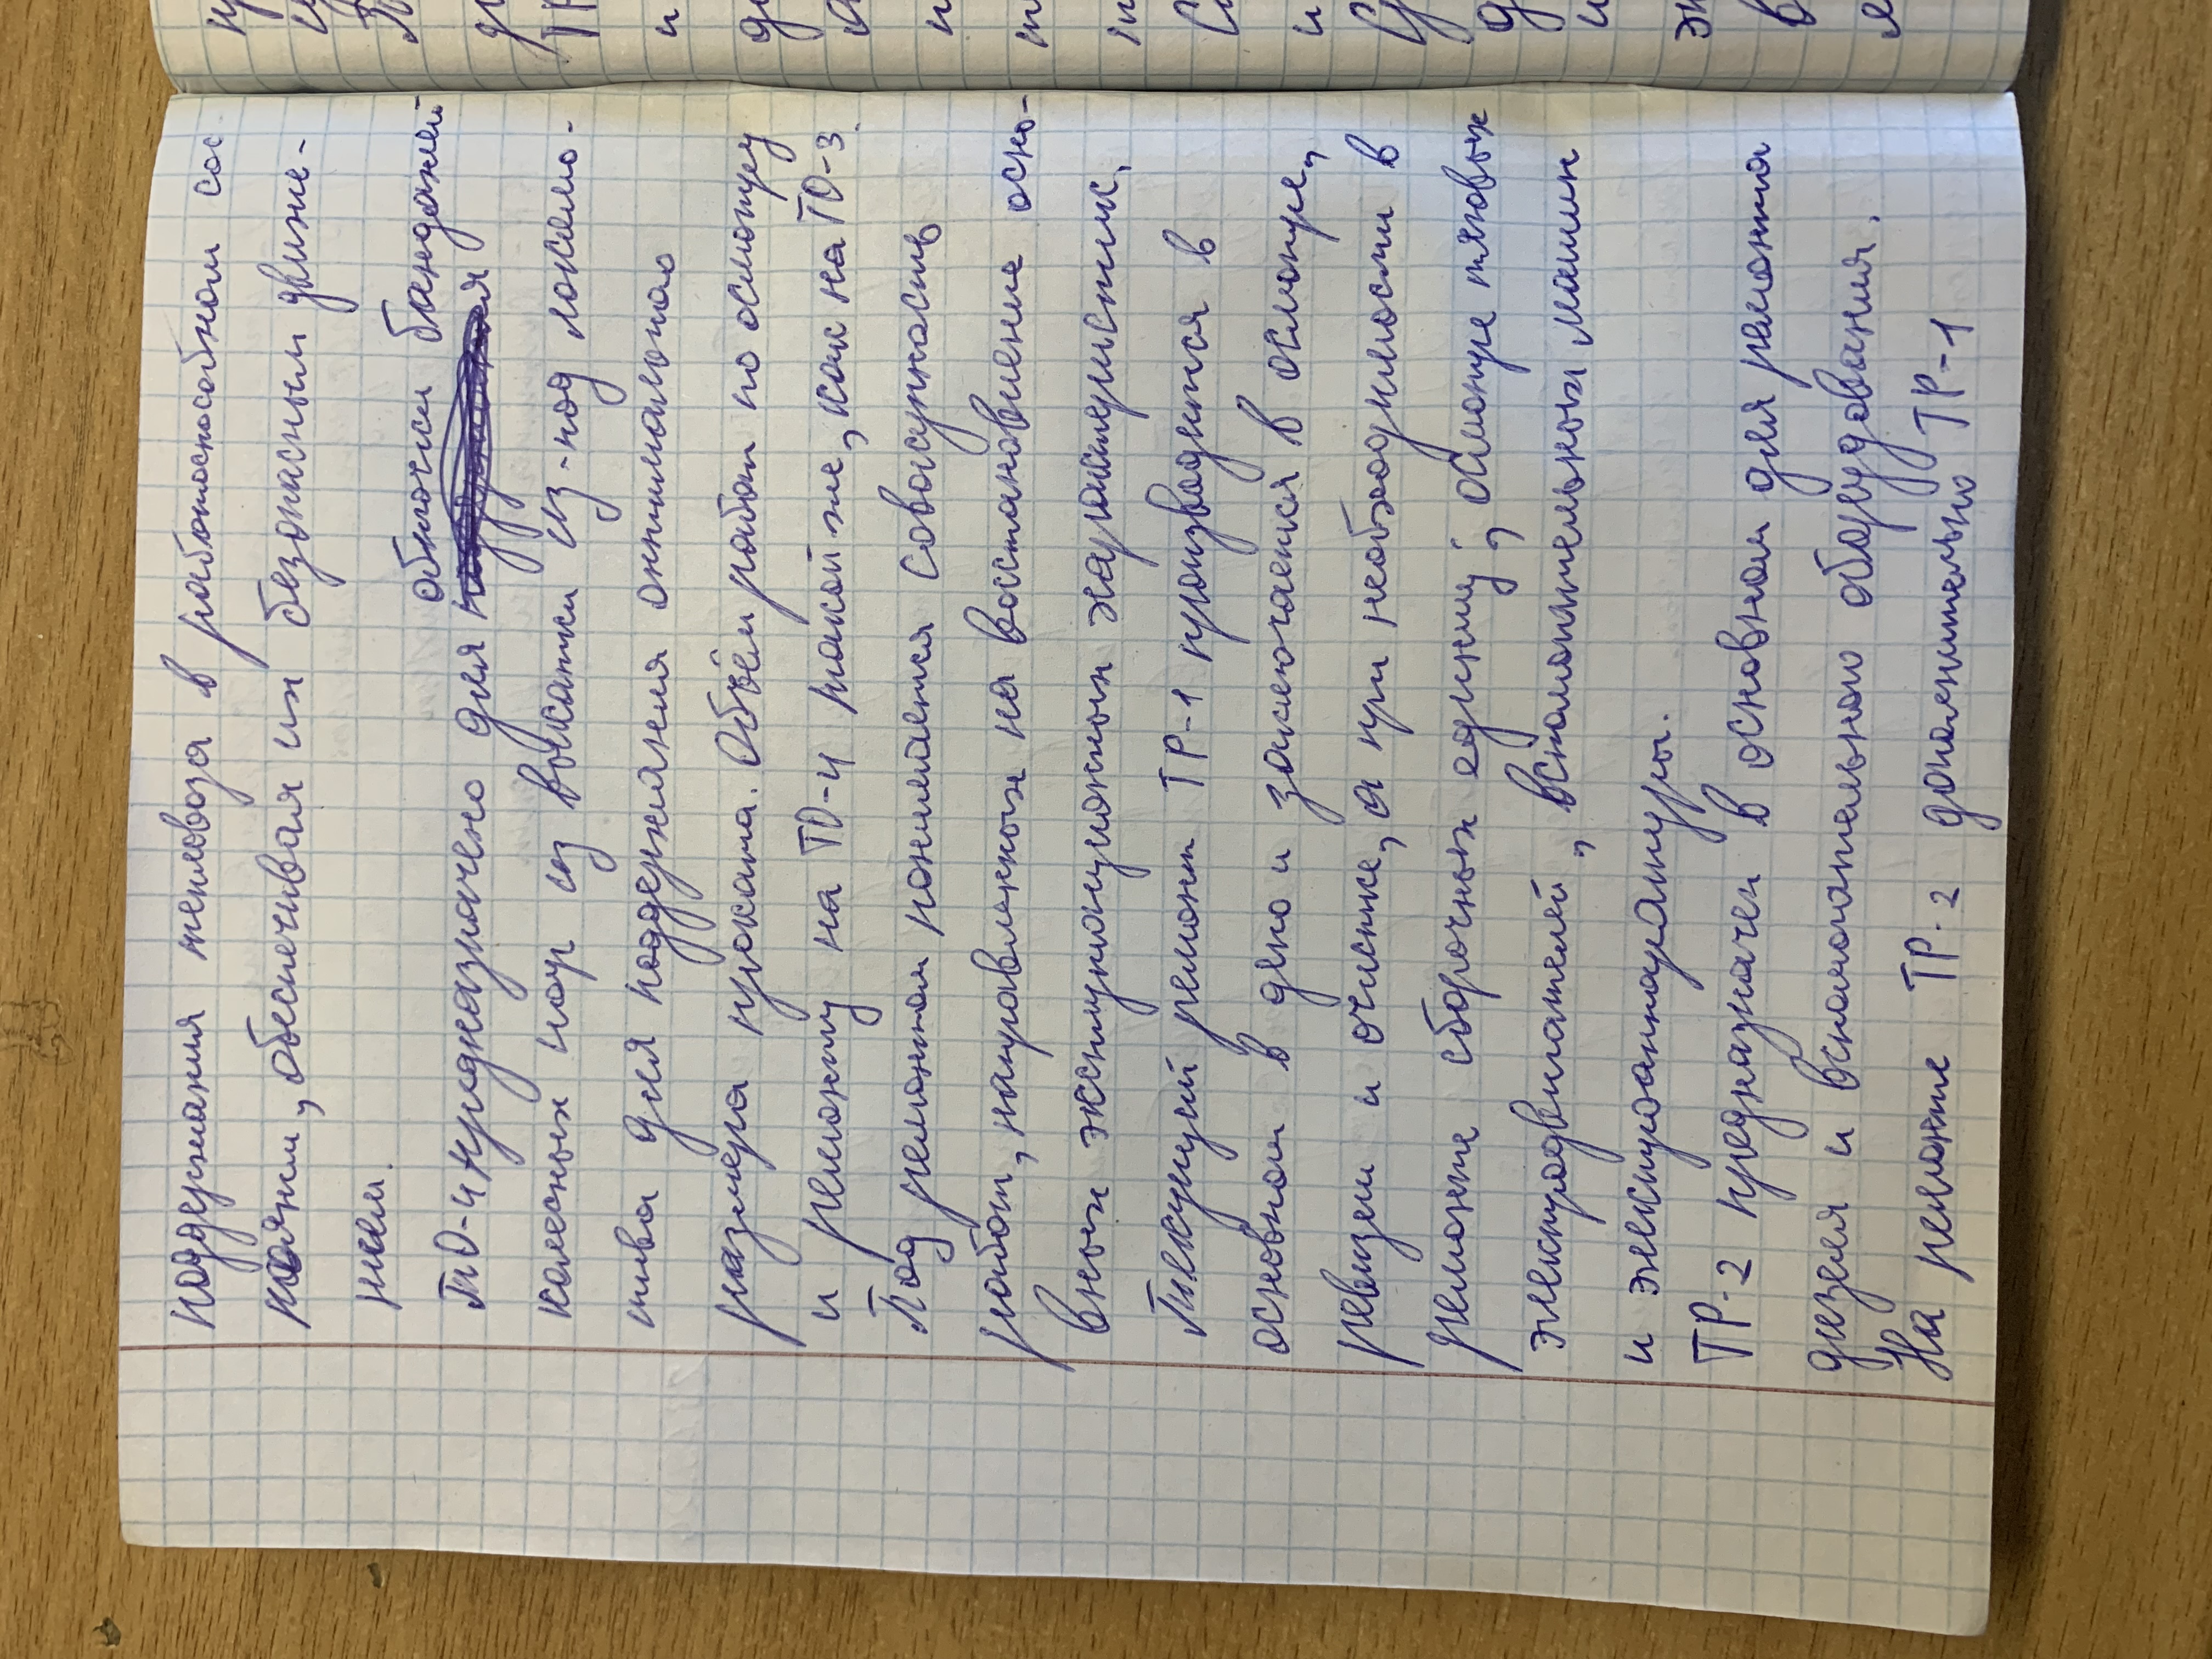 поддержания тепловоза в работоспособном сос
тояни, обеспечивая их безопасным движе-
нием.
обточки бандажей
ТО-4 предназначено для
колесных пар из выкатки из-под локомо-
тива для поддержания оптимального
размера проката. Объём работ по осмотру
и ремонту на ТО-4 такой же, как на ТО-3.
Под ремонтом понимается совокупность
работ, направленных на восстановление осно-
вных эксплуационных характеристик,
Текущий ремонт ТР-1 производится в
основном в депо и заключается в осмотре,
ревизии и очистке, а при необходимости в
ремонте сборочных единиц; осмотре тяговых
электродвигателей, вспомогательных машин
и электроаппаратуры.
ТР-2 предназначен в основном для ремонта
дизеля и вспомогательного оборудования.
На ремонте ТР-2 дополнительно ТР-1